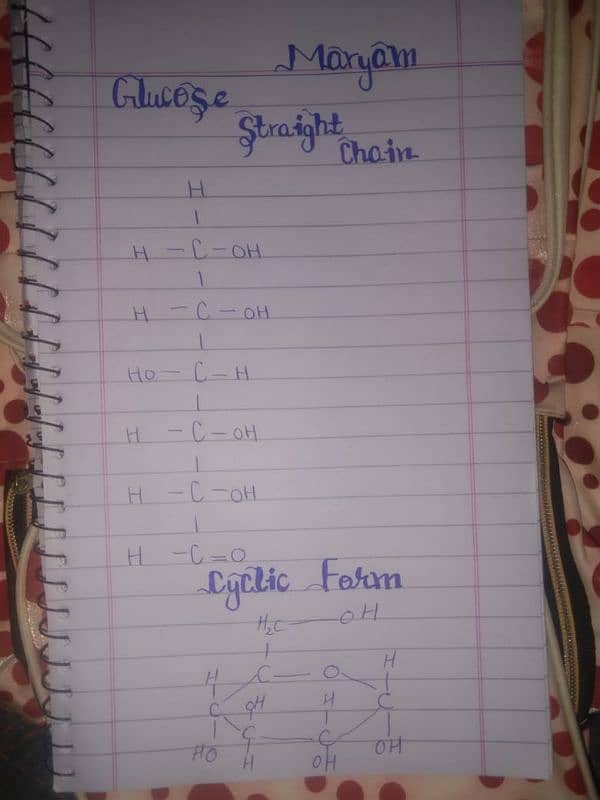 Maryam
Glucose
Straight
Chain
H
H - C - OH
H - C - OH
HO - C - H
H - C - OH
H - C - OH
H - C = O
Cyclic Form
H₂C — OH
H C — O H
C OH H C
HO C C OH
H OH